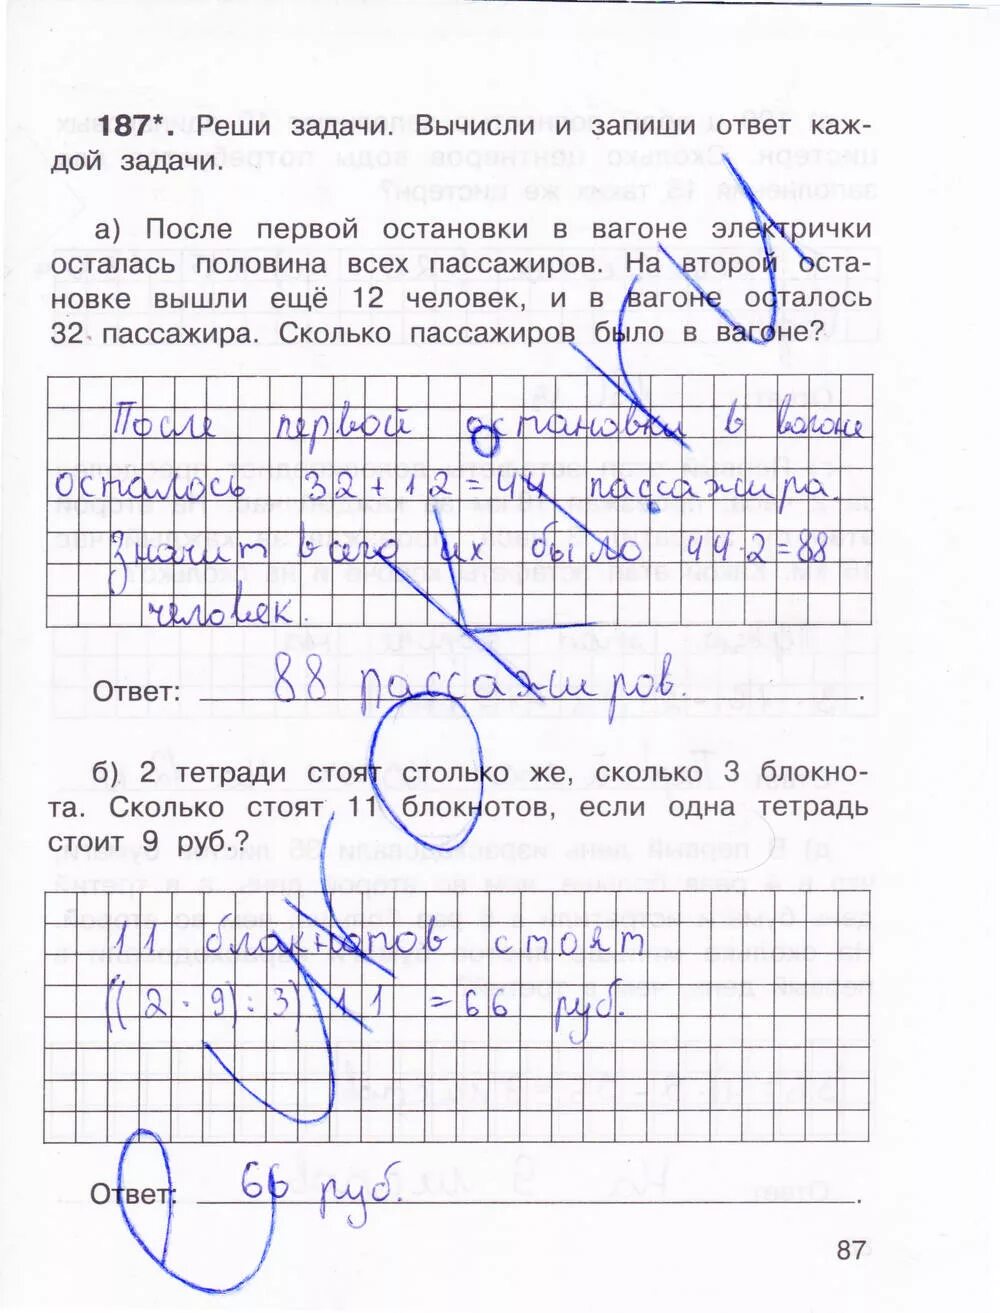 187*. Реши задачи. Вычисли и запиши ответ каж-
дой задачи.
а) После первой остановки в вагоне электрички
осталась половина всех пассажиров. На второй оста-
новке вышли ещё 12 человек, и в вагоне осталось
32 пассажира. Сколько пассажиров было в вагоне?
После первой остановки в вагоне
осталось 32+12=44 пассажира.
Значит всего их было 44·2=88
человек.
Ответ: 88 пассажиров.
б) 2 тетради стоят столько же, сколько 3 блокно-
та. Сколько стоят 11 блокнотов, если одна тетрадь
стоит 9 руб.?
11 блокнотов стоят
((2·9):3)·11=66 руб.
Ответ: 66 руб.
87